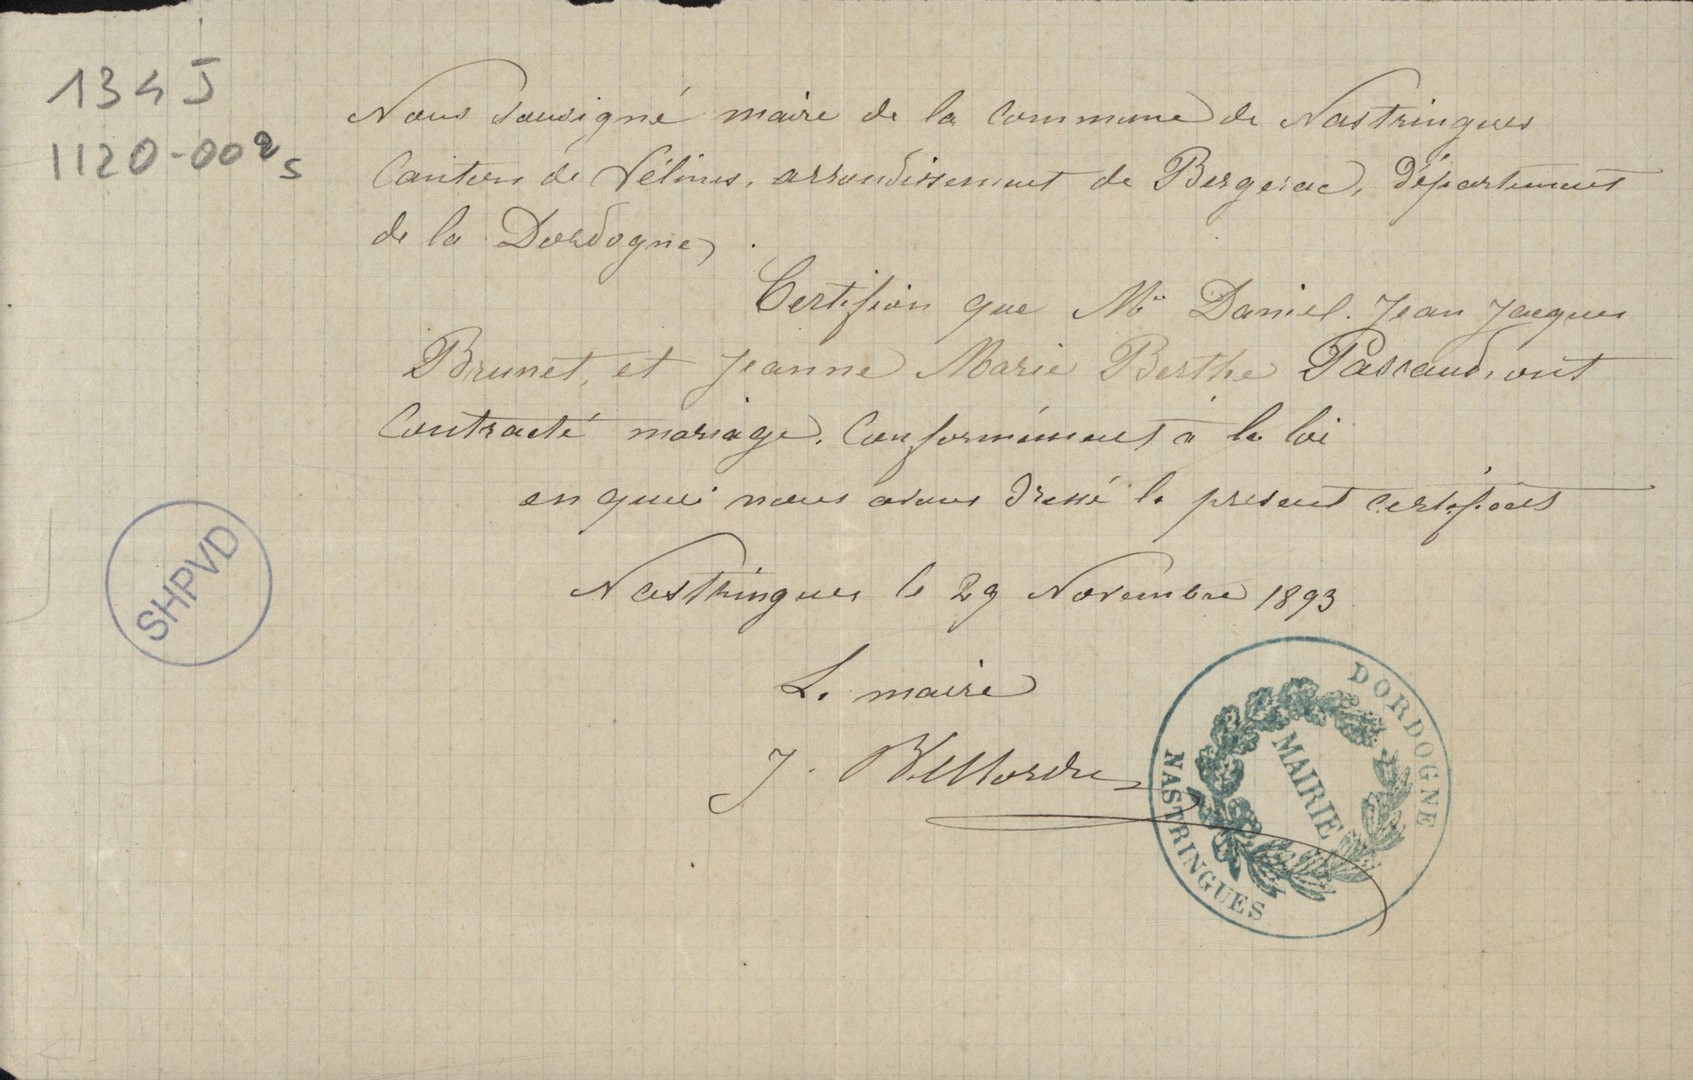 134 J
1120-002
S
Nous sousigné maire de la commune de Nastringues
Canton de Vélines, arrondissement de Bergerac, département
de la Dordogne,
Certifion que Mr Daniel. Jean Jacques
Brunet, et Jeanne Marie Berthe Pascaud, ont
Contracté mariage, Conformément à la loi
en quoi nous avons dressé le présent certificat
Nastringues le 29 Novembre 1893
SHPVD
Le maire
J.
DORDOGNE
MAIRIE
NASTRINGUES